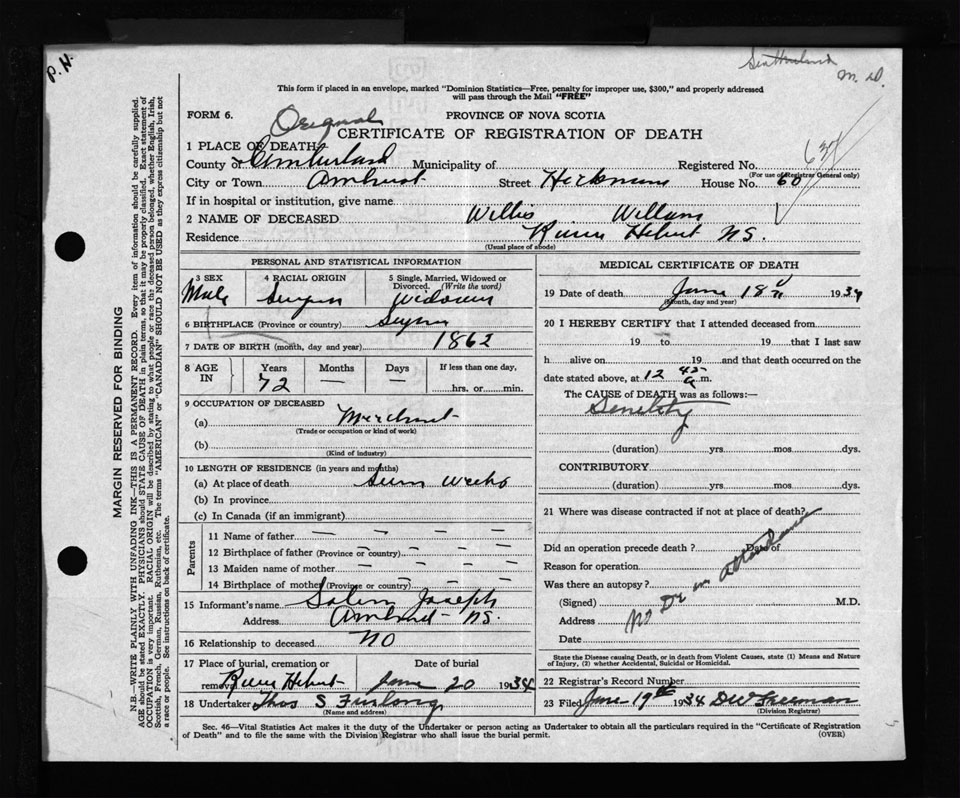 P. H.
M. D.
This form if placed in an envelope, marked "Dominion Statistics—Free, penalty for improper use, $300," and properly addressed
will pass through the Mail "FREE"
FORM 6.
Original
PROVINCE OF NOVA SCOTIA
CERTIFICATE OF REGISTRATION OF DEATH
1 PLACE OF DEATH
County of Cumberland Municipality of Registered No.
(For use of Registrar General only)
City or Town Amherst Street Hickman House No. 60
If in hospital or institution, give name
2 NAME OF DECEASED Willis Williams
Residence River Hebert N.S.
(Usual place of abode)
PERSONAL AND STATISTICAL INFORMATION
3 SEX
Male
4 RACIAL ORIGIN
5 Single, Married, Widowed or
Divorced. (Write the word)
Widower
6 BIRTHPLACE (Province or country)
7 DATE OF BIRTH (month, day and year) 1862
8 AGE
IN
Years
72
Months
—
Days
—
If less than one day,
hrs. or min.
9 OCCUPATION OF DECEASED
(a) Merchant
(Trade or occupation or kind of work)
(b)
(Kind of industry)
10 LENGTH OF RESIDENCE (in years and months)
(a) At place of death weeks
(b) In province
(c) In Canada (if an immigrant)
Parents
11 Name of father — — — —
12 Birthplace of father (Province or country) — — — —
13 Maiden name of mother — — — —
14 Birthplace of mother (Province or country) — — —
15 Informant's name Salem Joseph
Address Amherst N.S.
16 Relationship to deceased NO
17 Place of burial, cremation or
removal River Hebert
Date of burial
June 20 1934
18 Undertaker Thos S Furlong
(Name and address)
MEDICAL CERTIFICATE OF DEATH
19 Date of death June 18th 1934
(Month, day and year)
20 I HEREBY CERTIFY that I attended deceased from
19 to 19 that I last saw
h alive on 19 and that death occurred on
date stated above, at 12 45 a.m.
The CAUSE of DEATH was as follows:—
Senility
(duration) yrs. mos. dys.
CONTRIBUTORY
(duration) yrs. mos. dys.
21 Where was disease contracted if not at place of death?
Did an operation precede death ? Date of
Reason for operation
Was there an autopsy ?
No Dr in attendance
(Signed) M.D.
Address
Date
State the Disease causing Death, or in death from Violent Causes, state (1) Means and Nature
of Injury, (2) whether Accidental, Suicidal or Homicidal.
22 Registrar's Record Number
23 Filed June 19th 1934 DW Freeman
(Division Registrar)
Sec. 46—Vital Statistics Act makes it the duty of the Undertaker or person acting as Undertaker to obtain all the particulars required in the "Certificate of Registration
of Death" and to file the same with the Division Registrar who shall issue the burial permit.
(OVER)
MARGIN RESERVED FOR BINDING
N.B.—WRITE PLAINLY WITH UNFADING INK—THIS IS A PERMANENT RECORD. Every item of information should be carefully supplied.
AGE should be stated EXACTLY. PHYSICIANS should STATE CAUSE OF DEATH in plain terms, so that it may be properly classified. Exact statement of
OCCUPATION is very important. RACIAL ORIGIN will be described by stating to what people or race the deceased person belonged, whether English, Irish,
Scottish, French, German, Russian, Ruthenian, etc. The terms "AMERICAN" or "CANADIAN" SHOULD NOT BE USED as they express citizenship but not
a race or people. See instructions on back of certificate.